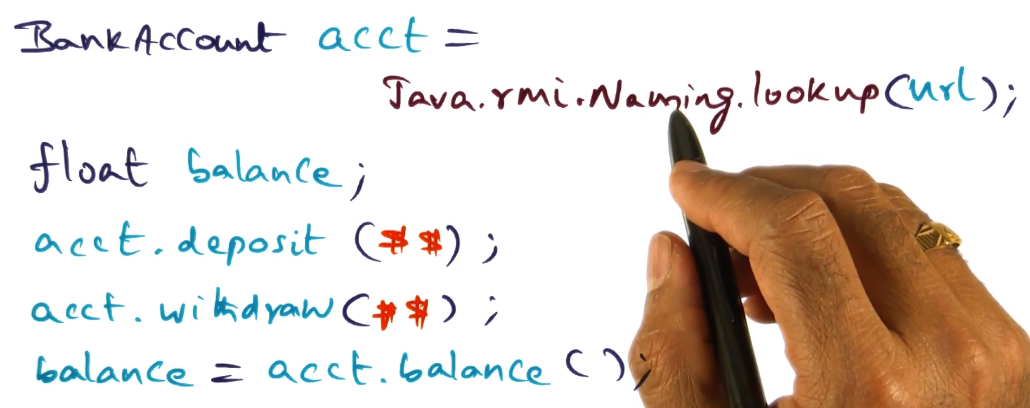 BankAccount acct =
Java.rmi.Naming.lookup(url);
float balance;
acct.deposit (##);
acct.withdraw(##);
balance = acct.balance ();